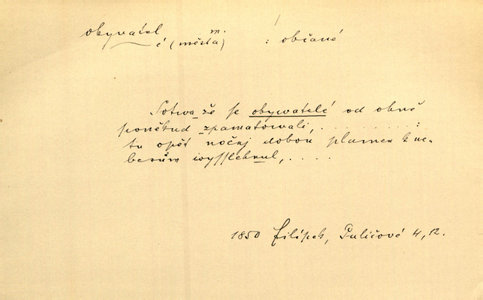 obyvatel m.
é (města) : občané
Sotva že se obyvatelé od ohně
poněkud zpamatovali, . . . . . . . :
tu opět nočej dobou plamen k ne-
besům vyšlehnul, . . . .
1850 Filípek, Paličové 4, 12.